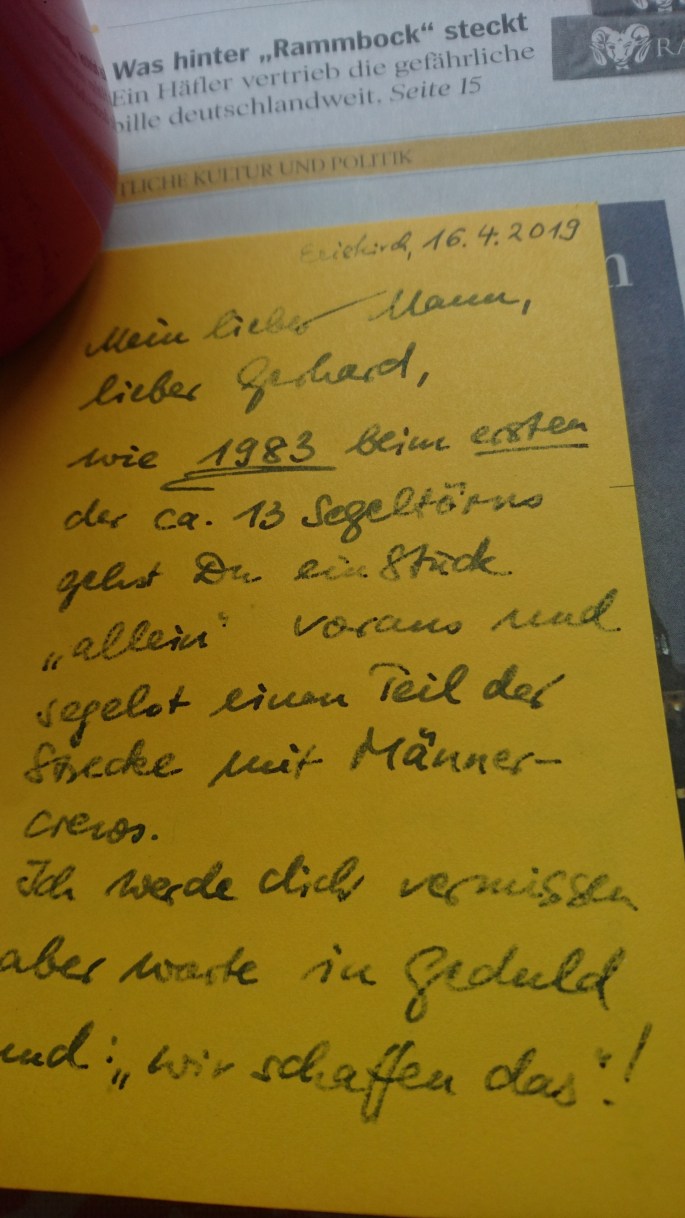 Was hinter „Rammbock“ steckt
Ein Häfler vertrieb die gefährliche
pille deutschlandweit. Seite 15
RA
TLICHE KULTUR UND POLITIK
n
Eriskirch, 16.4.2019
Mein lieber Mann,
lieber Gerhard,
wie 1983 beim ersten
der ca. 13 Segeltörns
gehst Du ein Stück
„allein“ voraus und
segelst einen Teil der
Strecke mit Männer-
crews.
Ich werde dich vermissen
aber warte in Geduld
und: „wir schaffen das“!